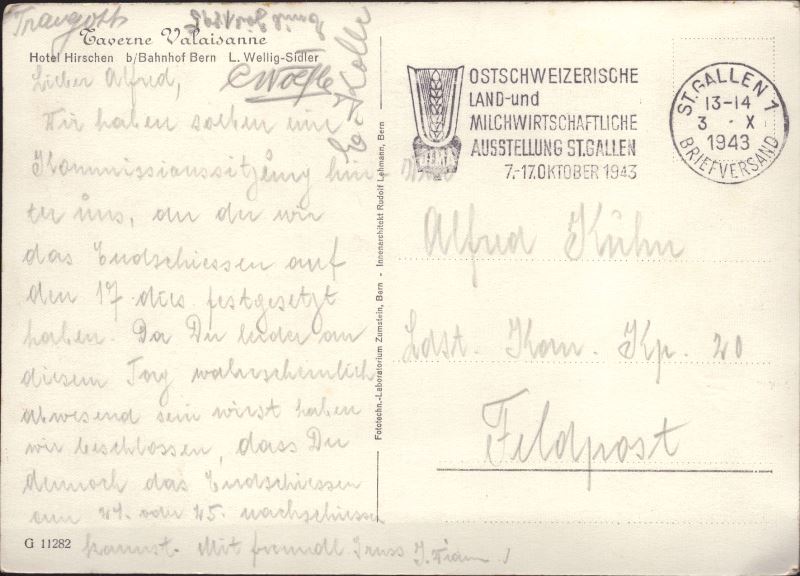 Traugott
Taverne Valaisanne
Hotel Hirschen b/Bahnhof Bern L. Wellig-Sidler
Lieber Alfred,
Wir haben soeben eine
Kommissionssitzung hin
ter uns, an der wir
das Endschiessen auf
den 17 dies festgesetzt
haben. Da Du leider an
diesem Tag wahrscheinlich
abwesend sein wirst haben
wir beschlossen, dass Du
dennoch das Endschiessen
am 24. oder 25. nachschiessen
kannst. Mit freundl Gruss
G 11282
Fototechn.-Laboratorium Zumstein, Bern - Innenarchitekt Rudolf Lehmann, Bern
OSTSCHWEIZERISCHE
LAND-und
MILCHWIRTSCHAFTLICHE
AUSSTELLUNG ST.GALLEN
7.-17.OKTOBER 1943
ST.GALLEN 1
13-14
3 · X
1943
BRIEFVERSAND
Alfred Kühn
Ldst. Kom. Kp. 20
Feldpost